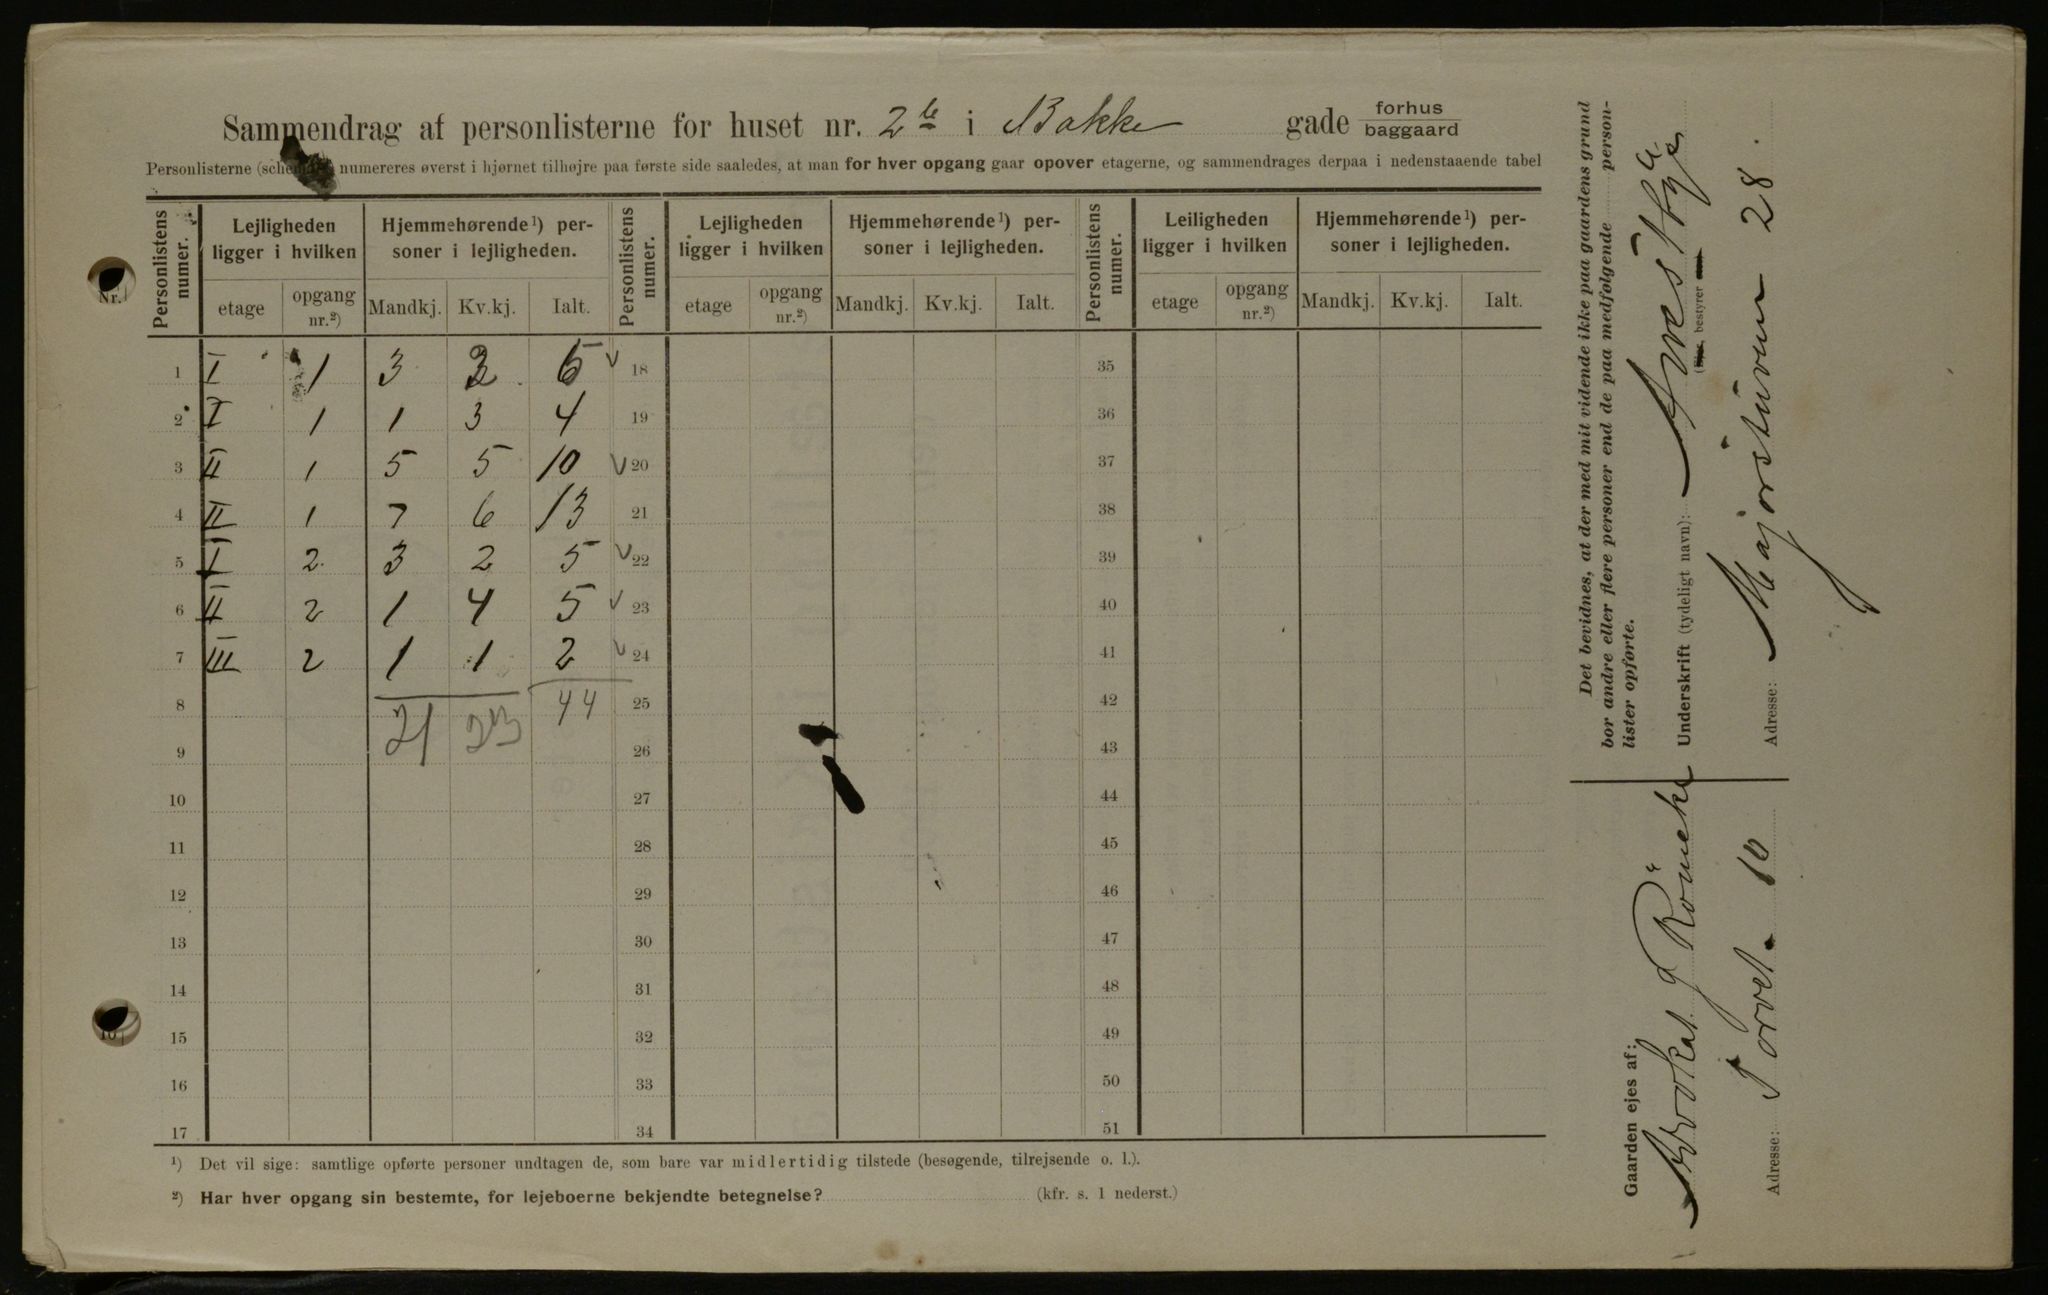 Sammendrag af personlisterne for huset nr. 2b i Bakke gade forhus baggaard
Personlisterne (schema numereres øverst i hjørnet tilhøjre paa første side saaledes, at man for hver opgang gaar opover etagerne, og sammendrages derpaa i nedenstaaende tabel
Personlistens numer. Lejligheden ligger i hvilken Hjemmehørende¹) personer i lejligheden. Personlistens numer. Lejligheden ligger i hvilken Hjemmehørende¹) personer i lejligheden. Personlistens numer. Leiligheden ligger i hvilken Hjemmehørende¹) personer i lejligheden.
etage opgang nr.²) Mandkj. Kv.kj. Ialt. etage opgang nr.²) Mandkj. Kv.kj. Ialt. etage opgang nr.²) Mandkj. Kv.kj. Ialt.
1 I 1 3 2 5 18 35
2 I 1 1 3 4 19 36
3 II 1 5 5 10 20 37
4 II 1 7 6 13 21 38
5 I 2 3 2 5 22 39
6 II 2 1 4 5 23 40
7 III 2 1 1 2 24 41
8 21 23 44 25 42
9 26 43
10 27 44
11 28 45
12 29 46
13 30 47
14 31 48
15 32 49
16 33 50
17 34 51
¹) Det vil sige: samtlige opførte personer undtagen de, som bare var midlertidig tilstede (besøgende, tilrejsende o. l.).
²) Har hver opgang sin bestemte, for lejeboerne bekjendte betegnelse? (kfr. s. 1 nederst.)
Det bevidnes, at der med mit vidende ikke paa gaardens grund
bor andre eller flere personer end de paa medfølgende personlister opførte.
Underskrift (tydeligt navn):
(Ejer, bestyrer
Adresse: Majorstuven 28.
Gaarden ejes af:
Advokat Röneke
Adresse: Torvet 10
Nr.